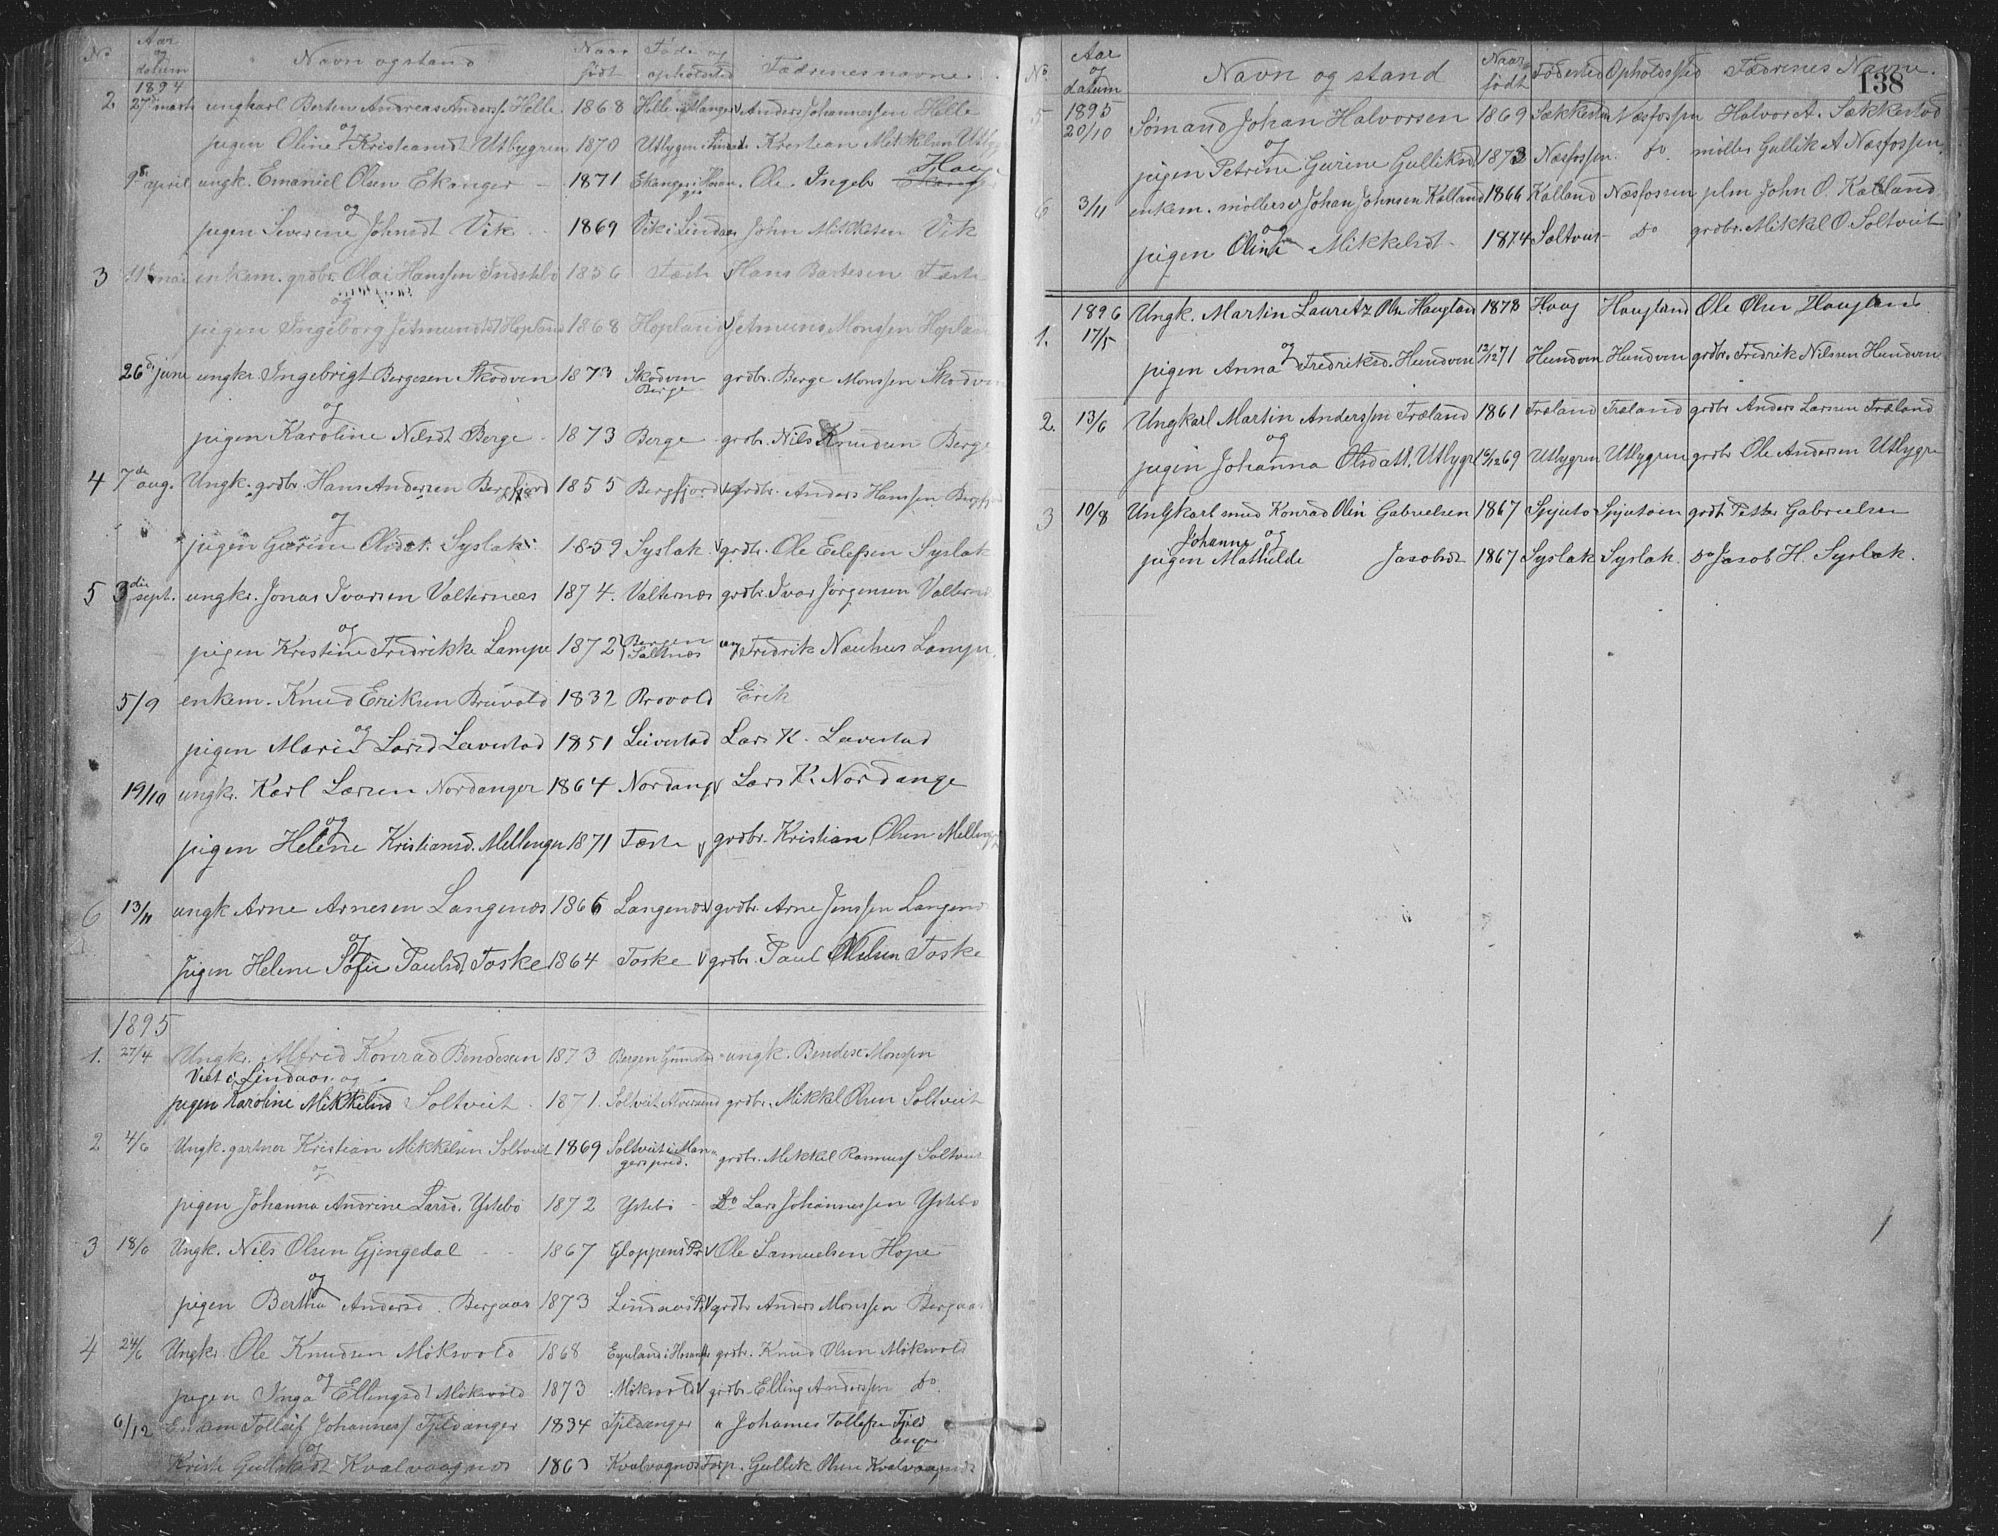 No Aar og datum Navn og stand Naar født Føde og opholdssted Fædrenes navne
1894
2 27de marts ungkarl Berten Andreas Anders. Helle 1868 Helle i Manger Anders Johannessen Helle
og
pigen Oline Kristiansdt Utbygren 1870 Utlygen Kristian Mikkelsen
9de april ungk. Emaniel Olsen Ekanger 1871 Ekanger i Ole Ingeb Hauge
og
pigen Severine Johnsdt Vik 1869 Vik i Lindaas John Mikkelsen Vik
3 mai enkem. grdbr. Olai Hanssen Indstebø 1856 Fæste Hans Bartesen Fæste
og
pigen Ingeborg Jetmundsdt Hopland 1868 Hopland Jetmund Monssen Hopland
26de june ungkr Ingebrigt Bergesen Skodven 1873 Skodven Berge grdbr. Berge Monssen Skodven
og
pigen Karoline Nilsdt Berge 1873 Berge grdbr. Nils Knudsen Berge
4 7de aug. Ungk. grdbr. Hans Andersen Bergfjord 1855 Bergfjord grdbr. Anders Hanssen Bergfjord
og
pigen Gurine Olsdat. Syslak 1859 Syslak grdbr. Ole Eilefsen Syslak
5 3die sept. ungkr. Jonas Ivarsen Valternæs 1874. Valternæs grdbr. Ivar Jørgensen Valternæs
og
pigen Kristine Fredrikke Lampe 1872 Bergen Saltnæs Fredrik Neuhus Lampe
5/9 enkem. Knud Eriksen Brüvold 1832 Brovold Erik
og
pigen Mari Larsd Leivestad 1851 Leivestad Lars K. Leivestad
19/10 ungkr. Karl Larsen Nordanger 1864 Nordang Lars K. Nordange
og
pigen Helene Kristiansd. Mellenger 1871 Fæste grdbr. Kristian Olsen Mellenger
6 13/11 ungk Arne Arnesen Langenæs 1866 Langenæs grdbr. Arne Jenssen Langenæs
og
pigen Helene Sofie Paulsdt Toske 1864 Toske grdbr. Paul Olsen Toske
1895
1. 27/4 Ungkr. Alfred Konrad Bendesen 1873 Bergen ungk. Bendest Monssen
Vset i Lindaas. og
pigen Karoline Mikkelsd Soltveit 1871. Soltveit Alversund grdbr. Mikkel Olsen Soltveit
2 4/6 Ungk. gartner Kristian Mikkelsen Soltveit 1869 Soltveit i Mangers pred. grdbr. Mikkel Rasmuss Soltveit
og
pigen Johanna Andrine Larsd. Ystebø 1872 Ystebø Do Lars Johannessen Ystebø
3 18/6 Ungk. Nils Olsen Gjengedal 1867 Gloppens Pr Ole Samuelsen Hope
og
pigen Bertha Andersd. Bergaas 1873 Lindaas Pr grdbr Anders Monssen Bergaas
4 24/6 Ungkr Ole Knudsen Mökvold 1868 grdbr. Knud Olsen Mökvold
og
pigen Inga Ellingsdt Mökvold 1873 Mökvold grdbr. Elling Anderssen Do.
6/12 Enkem Tolleif Johanness Fjeldanger 1834 Fjeldanger Johannes Tollefsen Fjeldanger
og
Kristi Gulliksdt Kvalvaagnæs 1863 Kvalvagnæs Gullik Olsen Kvalvaagnæs
138
No. Aar og datum Navn og stand Naar født Fødested Opholdssted Fædrenes Navne.
5 1895 20/10 Sømand Johan Halvorsen 1869 Sækkestad Næsfossen Halvor A. Sækkestad
og
pigen Petrine Gurine Gulliksd 1873 Næsfossen Do. møller Gullik A Næsfossen
6 3/11 enkem. møllersv Johan Johnsen Kalland 1866 Kalland Næsfossen plm John O. Kalland
og
pigen Oline Mikkelsdt 1874 Soltveit Do grdbr. Mikkel O. Soltveit
1896
1. 17/5 Ungk. Martin Lauretz Olse Haugland 1878 Haug Haugland Ole Olsen Haugland
og
pigen Anna Fredriksd. Hundven 12/12 71 Hundven Hundven grdbr. Fredrik Nilssen Hundven
2. 13/6 Ungkarl Martin Anderssen Træland 1861 Træland Træland grdbr Anders Larsen Træland
og
pigen Johanna Olsdatt. Utlygre 12/12 69 Utlygren Utlygren grdbr Ole Andersen Utlygre
3 10/8 Ungkarl smed Konrad Olin Gabrielsen 1867 Spjuto Spjutoen grdb Petter Gabrielsen
Johanne og
pigen Mathilde Jacobsd 1867 Syslak Syslak. Do Jacob H. Syslak.